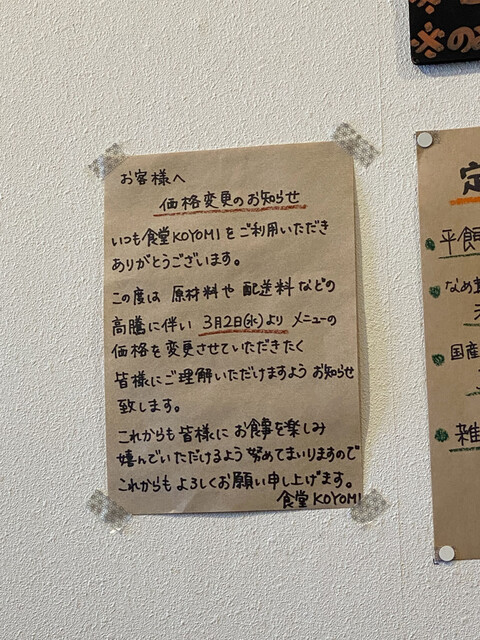 ※の
お客様へ
価格変更のお知らせ
いつも食堂KOYOMIをご利用いただき
ありがとうございます。
この度は 原材料や 配送料 などの
高騰に伴い 3月2日(水)より メニューの
価格を変更させていただきたく
皆様にご理解いただけますよう お知らせ
致します。
これからも 皆様に お食事を楽しみ
嬉んでいただけるよう 努めてまいりますので
これからも よろしくお願い申し上げます。
食堂 KOYOMI
定
平飼
なめ
国産
雑